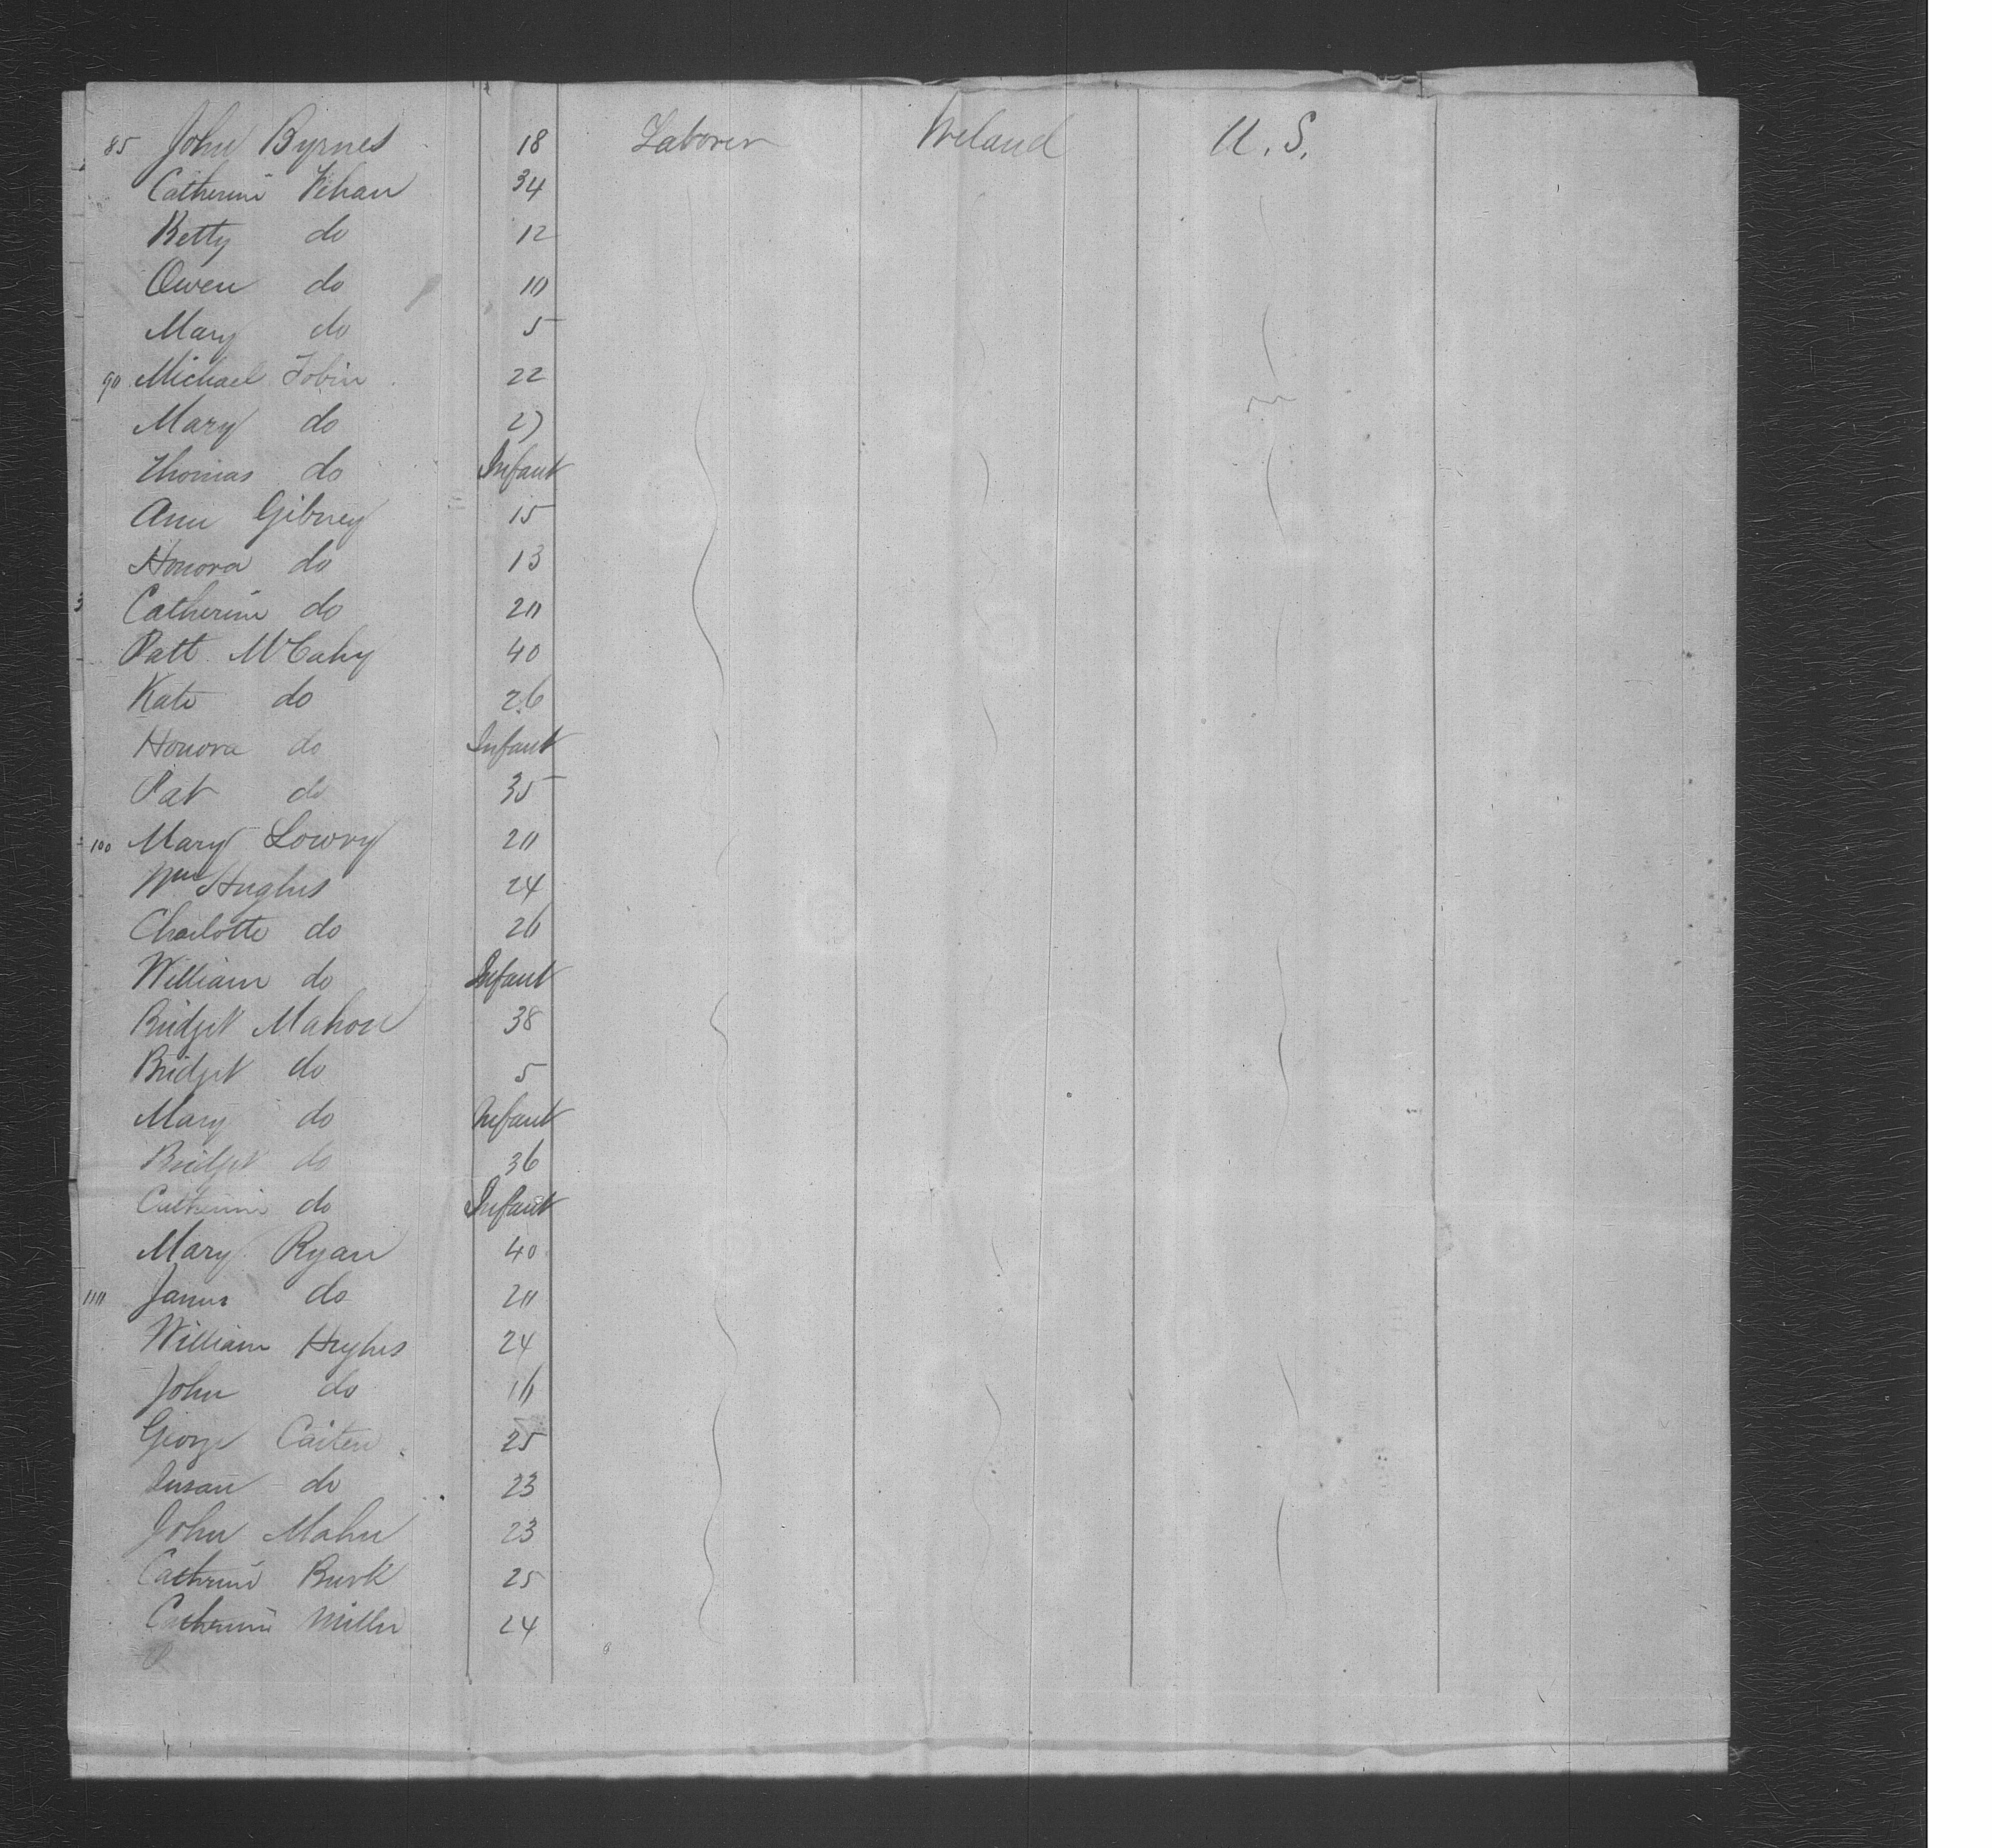 85 John Byrnes 18 Laborer Ireland U.S.
Catherine Vehan 34
Betty do 12
Owen do 10
Mary do 5
90 Michael Tobin 22
Mary do 27
Thomas do Infant
Ann Gibney 15
Honora do 13
Catherine do 20
Patt McCahy 40
Kate do 26
Honora do Infant
Pat do 35
100 Mary Lowry 20
Wm Hughes 24
Charlotte do 26
William do Infant
Bridget Mahon 38
Bridget do 5
Mary do Infant
Bridget do 36
Catherine do Infant
Mary Ryan 40
110 James do 20
William Hughes 24
John do 16
George 25
Susan do 23
John Mahn 23
Cathrine Burk 25
Catherine Miller 24